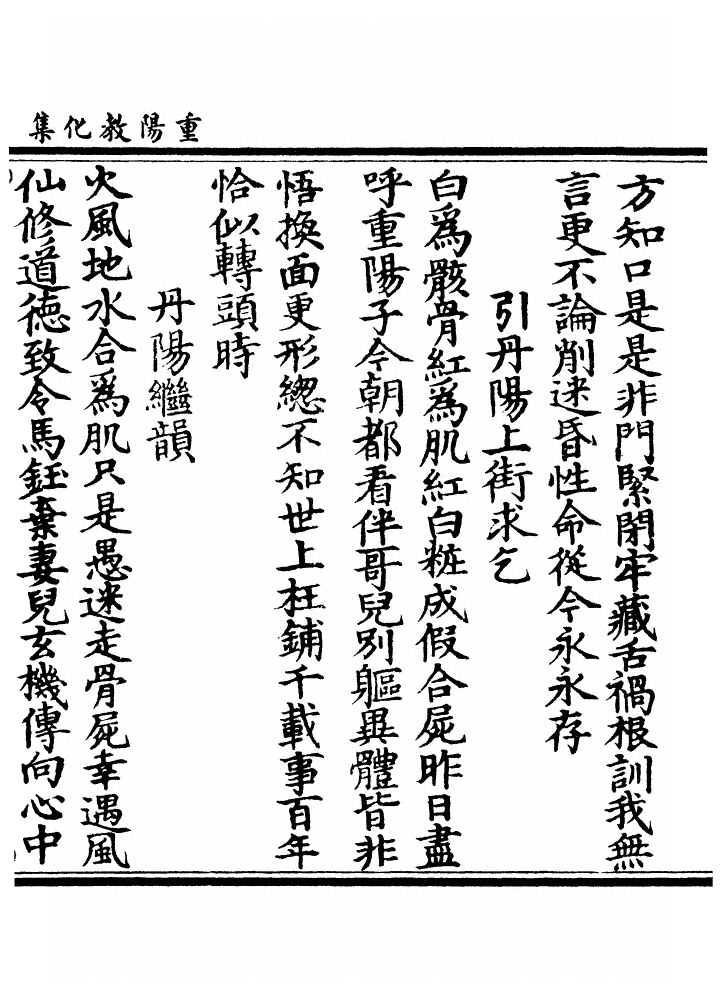 重陽教化集
方知口是是非門緊閉牢藏舌禍根訓我無
言更不論削迷昏性命從今永永存
引丹陽上街求乞
白為骸骨紅為肌紅白粧成假合屍昨日盡
呼重陽子今朝都看伴哥兒別軀異體皆非
悟換面更形緫不知世上枉鋪千載事百年
恰似轉頭時
丹陽繼韻
火風地水合為肌只是愚迷走骨屍幸遇風
仙修道德致令馬鈺棄妻兒玄機傳向心中